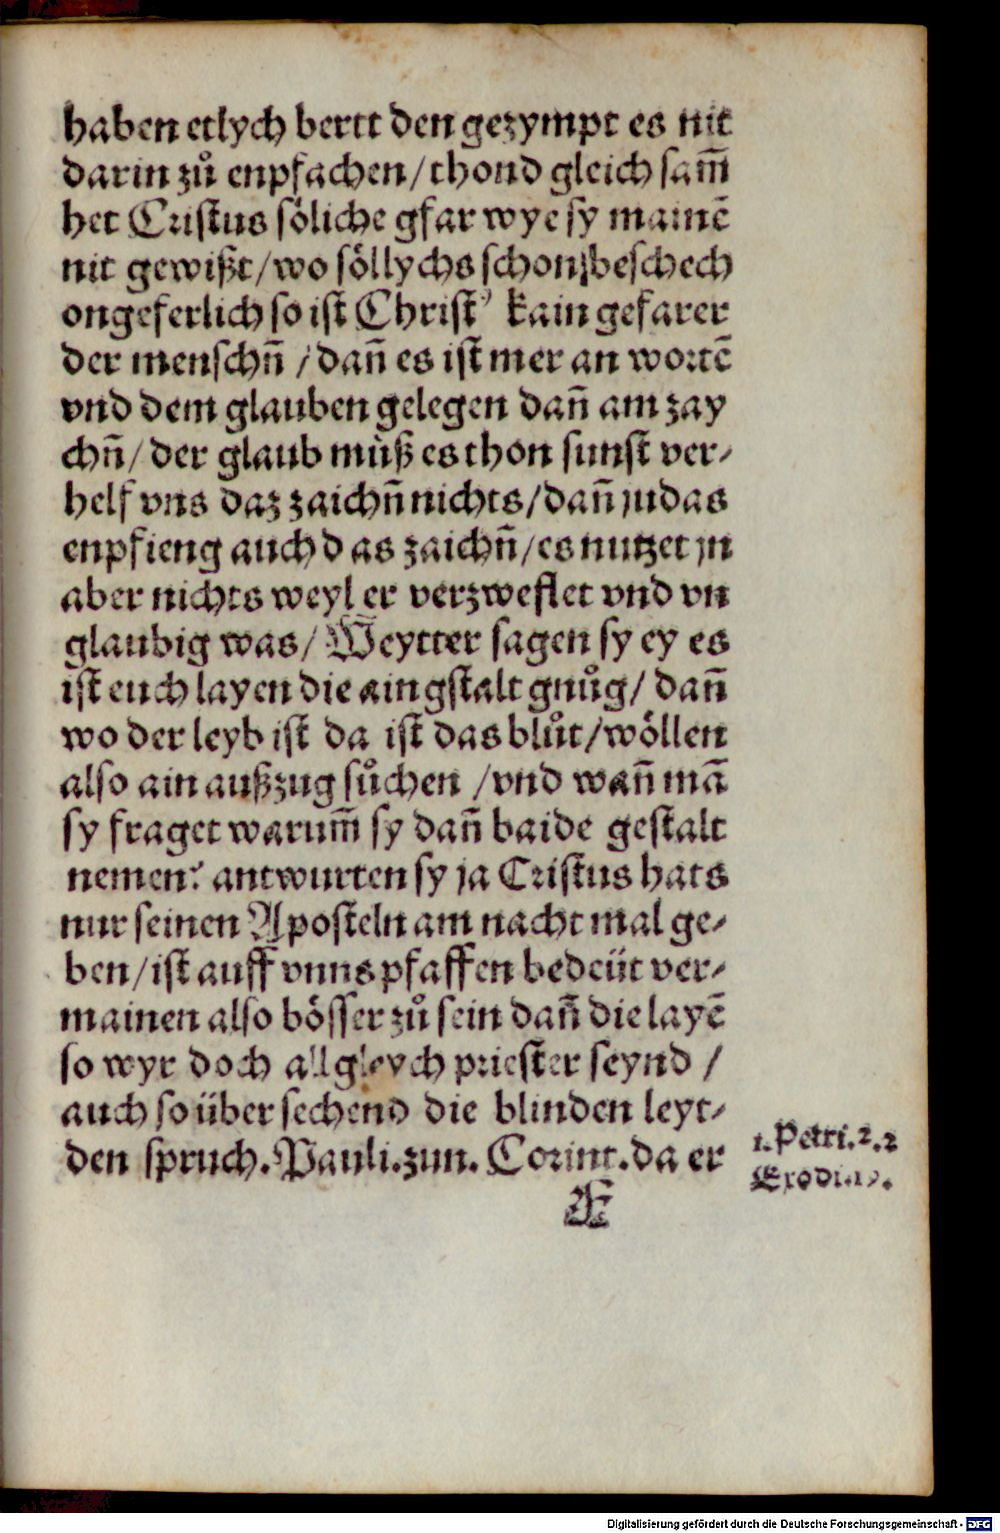 haben etlych bertt den gezympt es nit
darin zů enpfachen/thond gleich sam̃
het Cristus söliche gfar wye sy mainē
nit gewißt/wo söllychs schon beschech
ongeferlich so ist Christꝰ kain gefarer
der menschñ /dañ es ist mer an wortē
vnd dem glauben gelegen dañ am zay
chñ/ der glaub mùß es thon sunst ver⸗
helf vns daz zaichñ nichts/dañ judas
enpfieng auch das zaichñ/es nutzet jn
aber nichts weyl er verzweflet vnd vn
glaubig was/ Weytter sagen sy ey es
ist euch layen die ain gstalt gnůg/ dañ
wo der leyb ist da ist das blůt/wöllen
also ain außzug sůchen /vnd wañ mā
sy fraget warum̃ sy dañ baide gestalt
nemen? antwurten sy ja Cristus hats
nur seinen Aposteln am nacht mal ge⸗
ben/ist auff vnns pfaffen bedeüt ver⸗
mainen also bösser zů sein dañ die layē
so wyr doch all gleych priester seynd /
auch so über sechend die blinden leyt⸗
den spruch. Pauli.zun. Corint.da er
1.Petri.2.2
Exodi.19.
Æ
Digitalisierung gefördert durch die Deutsche Forschungsgemeinschaft - DFG